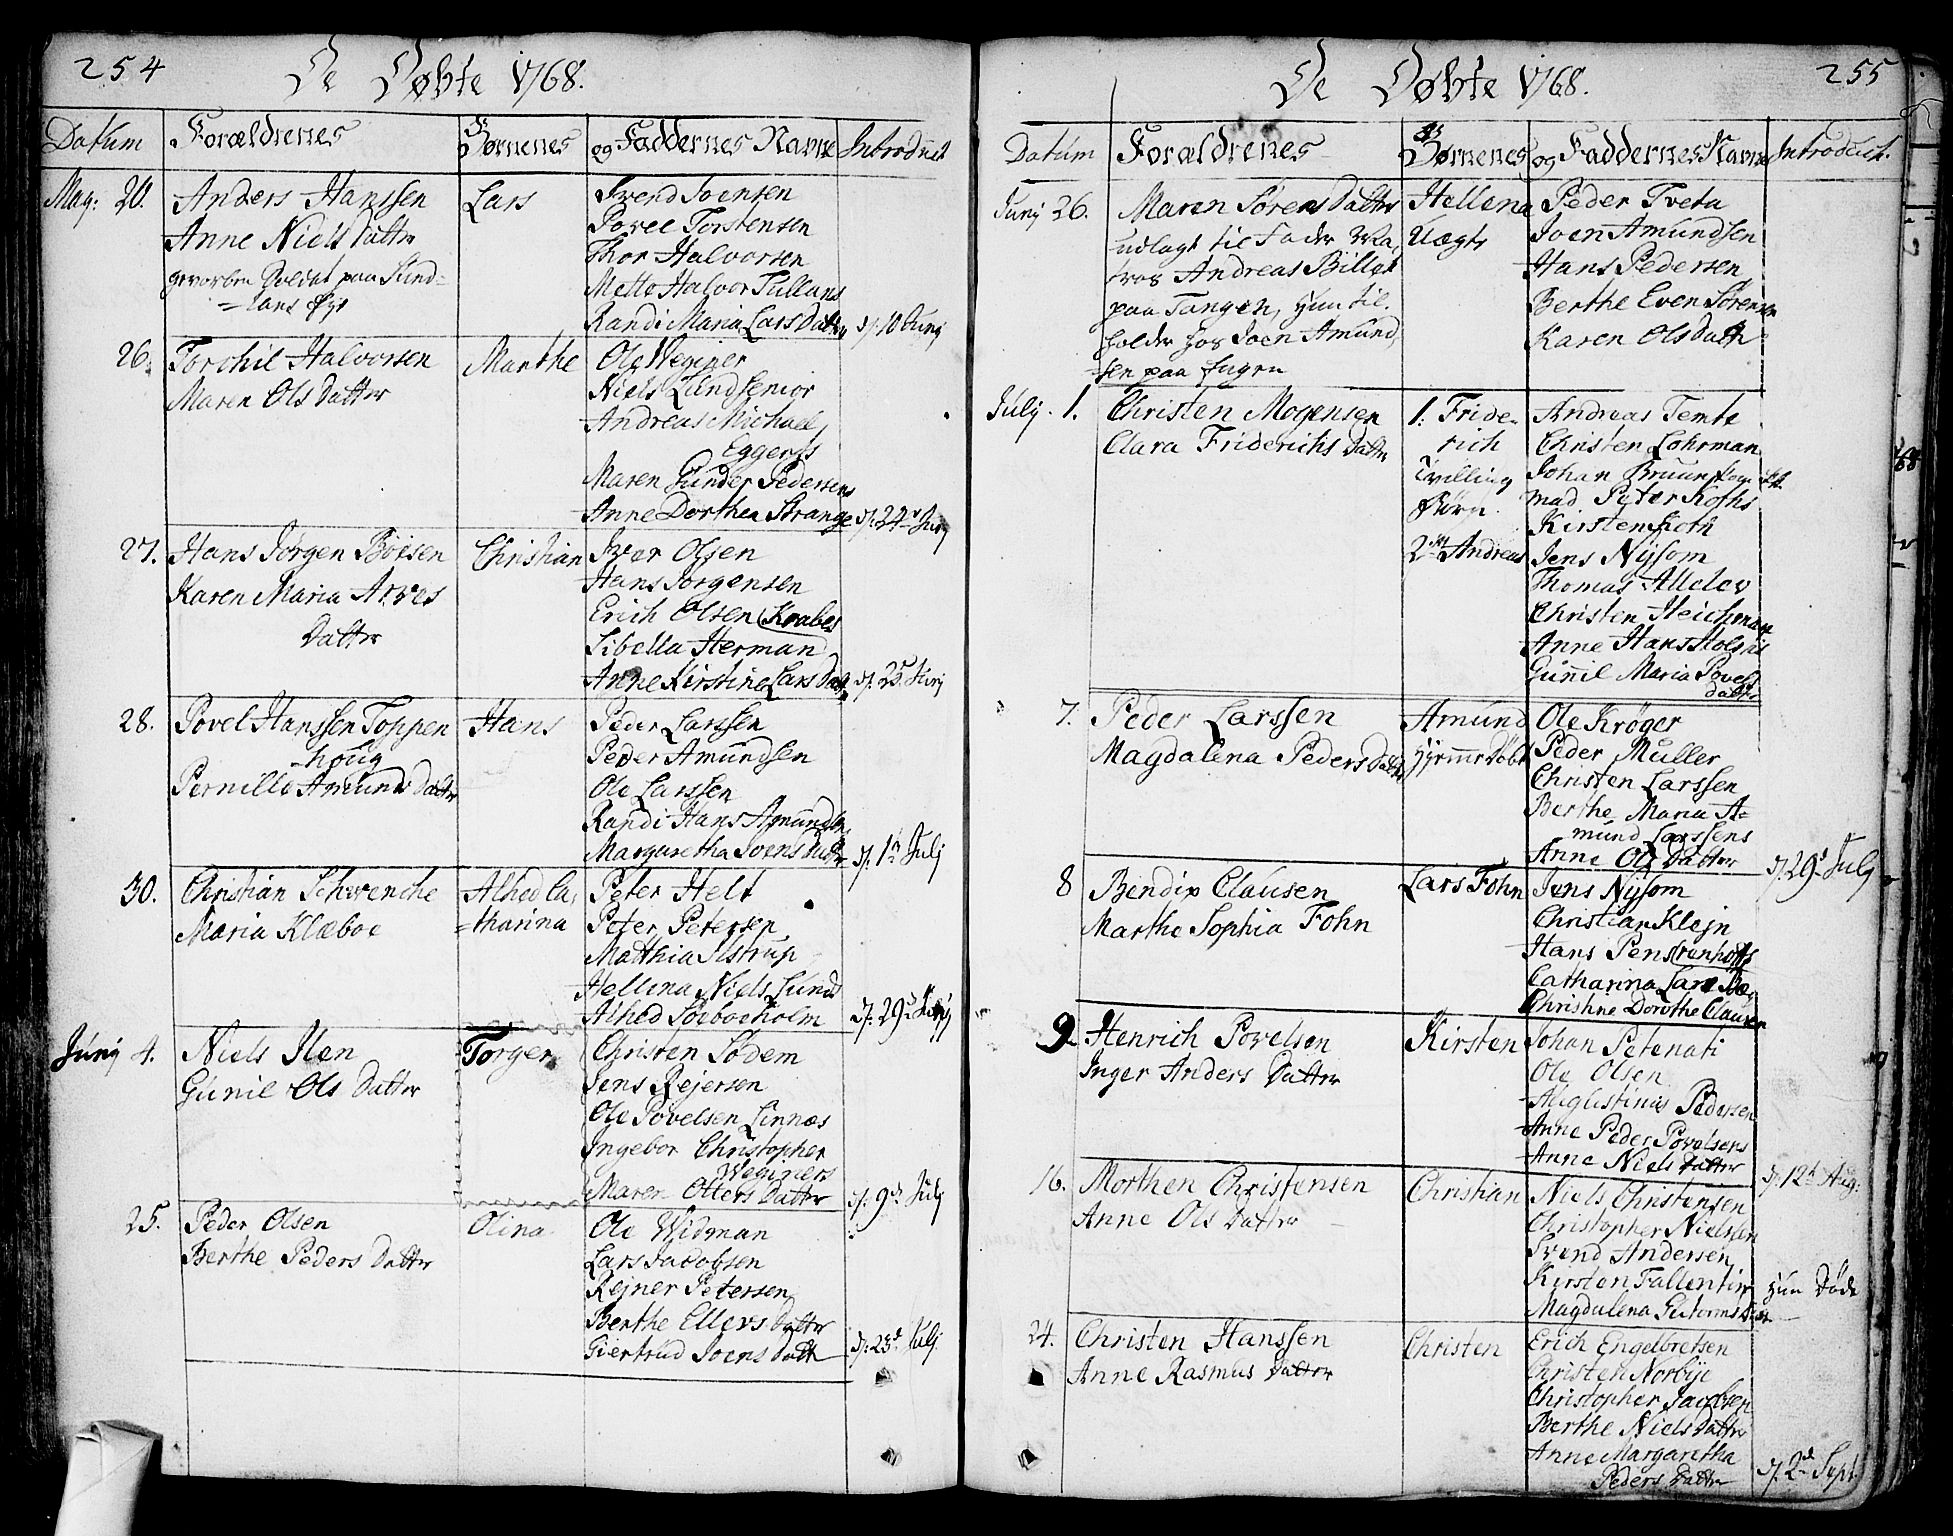 254
De Døbte 1768.
Datum Forældrenes Børnenes og Faddernes Navne Introduct
Maj: 20. Anders Hanssen Lars Svend Svensen
Anne Niels Datter Povel Torstensen
gevorben Soldat paa Sund- Thor Halvorsen
=Lans Øye Mette Halvor Tullans
Randi Maria Lars Datter d. 10 Junj
26. Torchil Halvorsen Marthe Ole Weginer
Maren Ols Datter Niels Lund senior
Andreas Michael
Eggerts
Maren Gunder Pedersens
Anne Dorthea Strange d. 24 Junj
27. Hans Jørgen Böisen Christian Iver Olsen
Karen Maria Arves Hans Jörgensen
Datter Erich Olsen Krabes
Sibella Herman
Anne Kirstine Lars Datter d. 25 Junj
28. Povel Hanssen Toppen Hans Peder Larssen
-houg Peder Amundsen
Pernille Amunds Datter Ole Larssen
Randi Hans Amundsens
Margaretha Joens Datter d. 1 Julj
30. Christian Schwenche Alhed Ca, Peter Helt
Maria Klæboe =tharina Peter Petersen
Matthia Ilstrup
Hellena Niels Lunds
Alhed Soeboeholm d. 29 Junj
Junij 4. Niels Ilen Torger Christen Södem
Gunil Ols Datter Jens Rejersen
Ole Povelsen Linnæs
Ingebor Christopher
Weginers
Maren Otters Datter d. 9 Julj
25. Peder Olsen Olina Ole Widman
Berthe Peders Datter Lars Jacobsen
Rejner Petersen
Berthe Ellevs Datter
Giertrud Joens Datt d. 23 Julj
255
De Døbte 1768.
Datum Forældrenes Børnenes og Faddernes Navne Introduct.
Junj 26. Maren Sörens Datter Hellena Peder Tveta
udlagt til Fader Ma, Uægte Joen Amundsen
tros Andreas Billet Hans Pedersen
paa Tangen, hun til, Berthe Even Sörensen
holder hos Joen Amund, Karen Ols Datter
-sen paa
Julj. 1. Christen Mogensen 1. Fride- Andreas Temte
Clara Friderichs Datter rich Christen Lohrman
Tvilling Johan Bruun
Børn. mad. Peter Kofhs
Kirsten Koth
2 Andreas Jens Nysom
Thomas Allelev
Christen Heichman
Anne Hans Holst
Gunnil Maria Povels
Datter
7. Peder Larssen Amund Ole Kröger
Magdalena Peders Datter Hjemmedøbt Peder Muller
Christen Larssen
Berthe Maria A-
mund Larssens
Anne Ols Datter d. 29 Julj
8 Bendix Clausen Lars Fohn Jens Nysom
Marthe Sophia Fohn Christian Klejn
Hans Pens
Catharina Lars
Christine Dorothe Clausen
9. Henrich Povelsen Kirsten Johan Petenati
Inger Anders Datter Ole Olsen
Augustinus Pedersen
Anne Peder Povelsens
Anne Niels Datter d. 12 Aug:
16. Morthen Christensen Christian Niels Christensen
Anne Ols Datter Christopher Nielsen
Svend Andersen
Kirsten Fallentin hun Døde
Magdalena
24. Christen Hanssen Christen Erich Engelbretsen
Anne Rasmus Datter Christen Norbye
Christopher Jacobsen
Berthe Niels Datter
Anne Margaretha
Peders Datter d. 2 Sept